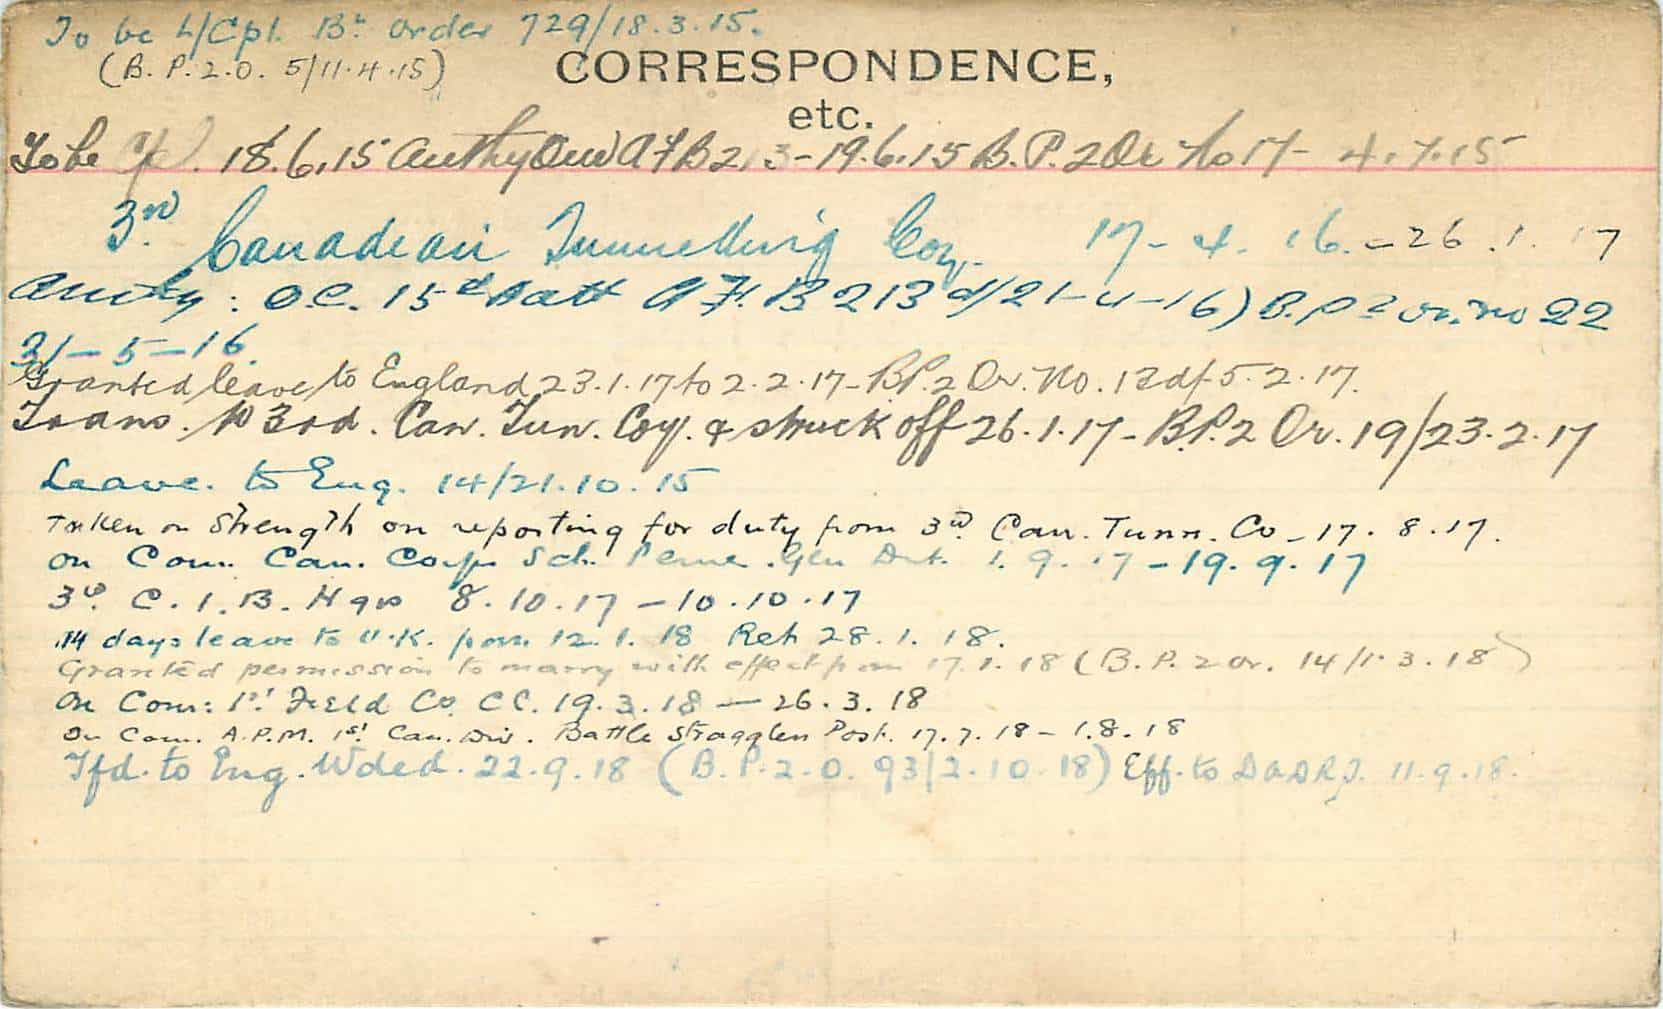 To be L/Cpl. Bt. Order 729/18.3.15.
(B.P.2.O. 5/11.4.15)
CORRESPONDENCE,
etc.
To be Cpl. 18.6.15 Authy AFB213-19.6.15 B.P.2 Or No 17- 4.7.15
3rd Canadian Tunnelling Coy. 17-4.16.-26.1.17
Authy: O.C. 15th Batt A.F. B213 d/21-4-16) B.P.2 or. no 22
31-5-16.
Granted leave to England 23.1.17 to 2.2.17-B.P.2 Or. No. 12 dt-5.2.17.
Trans. to 3rd. Can. Tun. Coy. & struck off 26.1.17-B.P.2 Or. 19/23.2.17
Leave. to Eng. 14/21.10.15
Taken on Strength on reporting for duty from 3rd Can. Tunn. Co-17.8.17.
on Com. Can. Corps Sch. 1.9.17-19.9.17
3rd C.I.B. Hqrs 8.10.17-10.10.17
14 days leave to U.K. from 12.1.18 Ret 28.1.18.
Granted permission to marry with effect from 17.1.18 (B.P.2 or. 14/1.3.18)
On Com: 1st Field Co. C.E. 19.3.18-26.3.18
On Com. A.P.M. 1st Can. Div. Battle Stragglers Post. 17.7.18-1.8.18
Tfd. to Eng. Wded. 22.9.18 (B.P.2.O. 93/2.10.18) Eff. to 11.9.18.